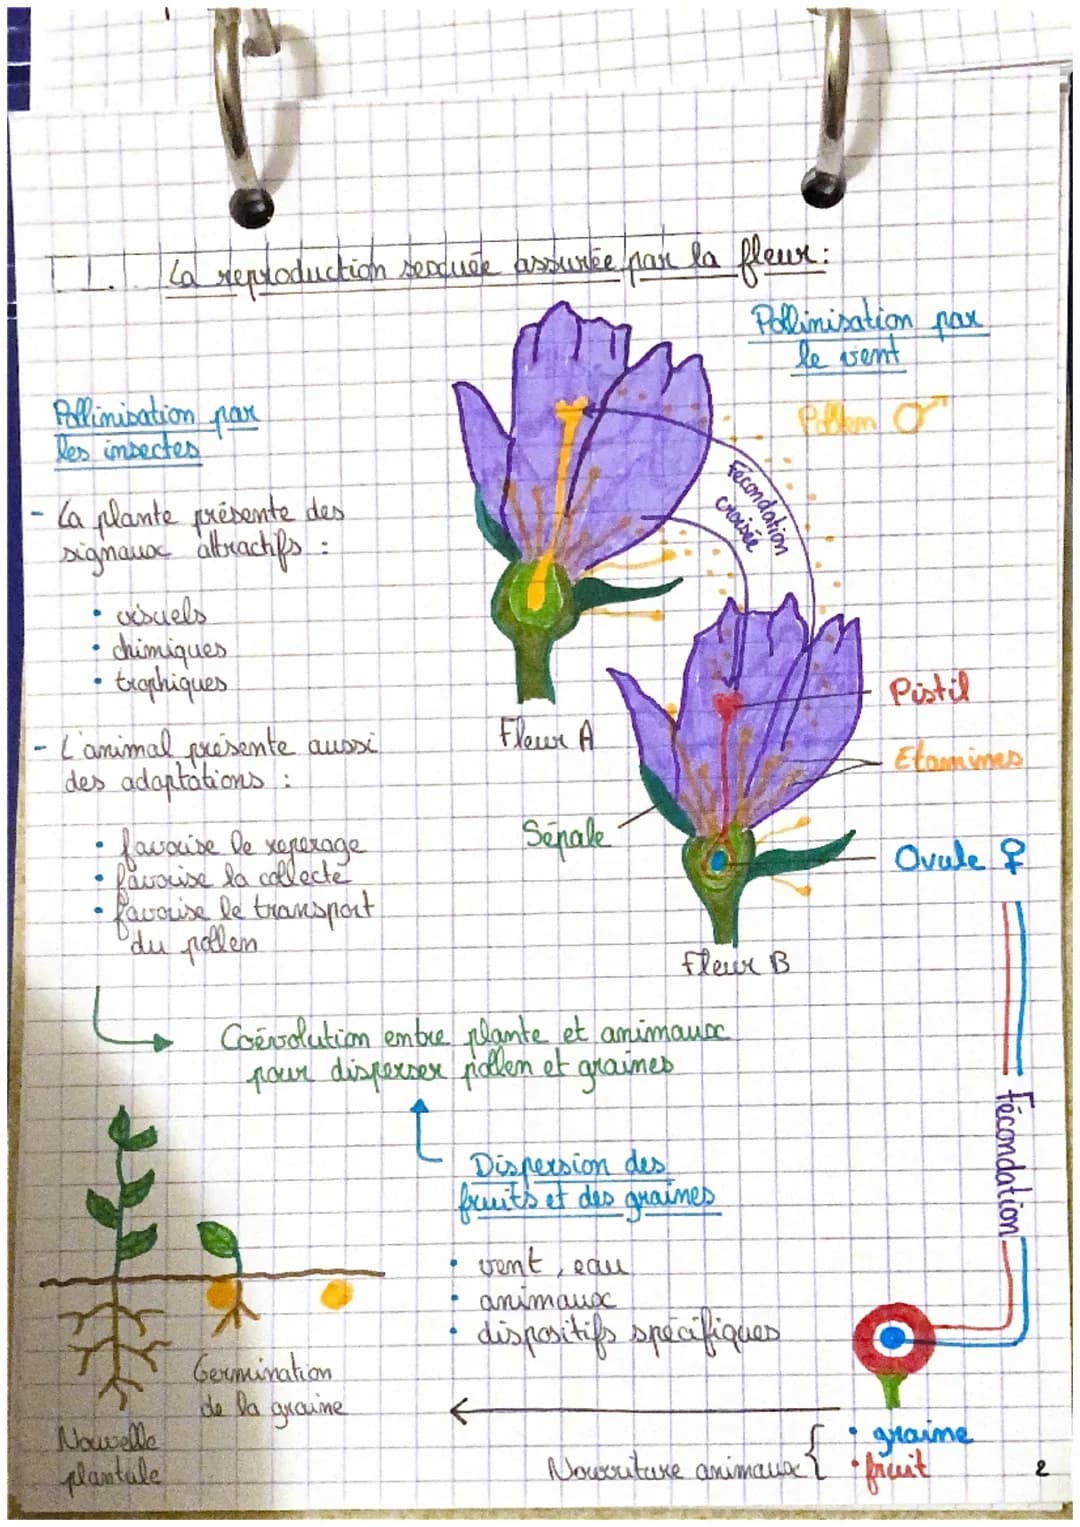 I. La reproduction sexuée assurée par la fleur :
Pollinisation par
le vent
Pollen ♂
Pollinisation par
les insectes
- La plante présente des
signaux attractifs :
• visuels
• chimiques
• trophiques
Fécondation
croisée
Fleur A
- L'animal présente aussi
des adaptations :
• favorise le reperage
• favorise la collecte
• favorise le transport
du pollen
Pistil
Etamines
Sépale
Ovule ♀
Fleur B
Coévolution entre plante et animaux
pour disperser pollen et graines
Fécondation
Dispersion des
fruits et des graines
• vent, eau
• animaux
• dispositifs spécifiques
Germination
de la graine
Nouvelle
plantule
Nourriture animaux {
• graine
• fruit
2